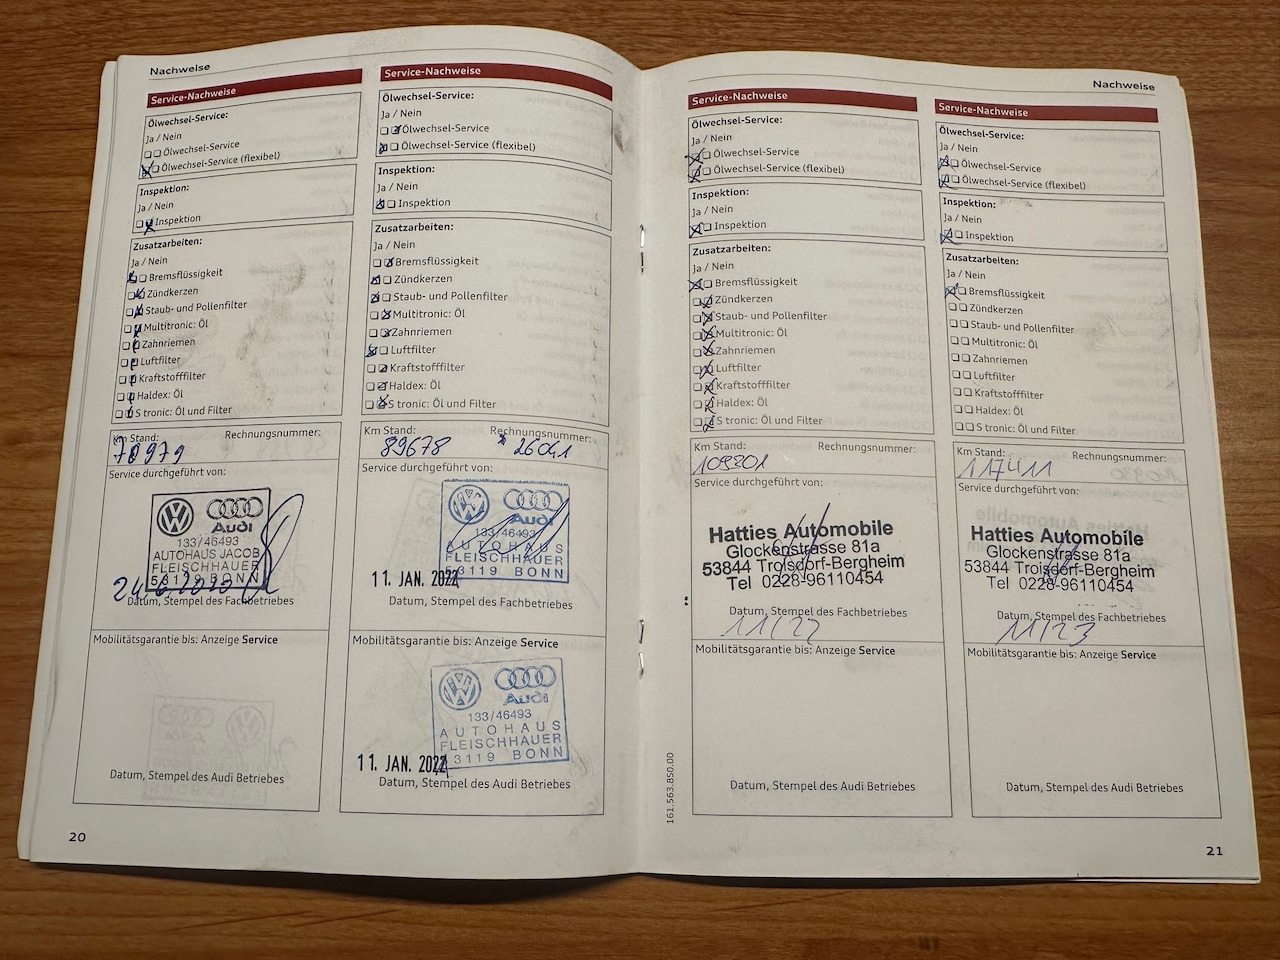 Nachweise
Service-Nachweise
Ölwechsel-Service:
Ja / Nein
Ölwechsel-Service
Ölwechsel-Service (flexibel)
Inspektion:
Ja / Nein
Inspektion
Zusatzarbeiten:
Ja / Nein
Bremsflüssigkeit
Zündkerzen
Staub- und Pollenfilter
Multitronic: Öl
Zahnriemen
Luftfilter
Kraftstofffilter
Haldex: Öl
S tronic: Öl und Filter
Km Stand: Rechnungsnummer:
70979
Service durchgeführt von:
Audi
133/46493
AUTOHAUS JACOB
FLEISCHHAUER
53119 BONN
Datum, Stempel des Fachbetriebes
Mobilitätsgarantie bis: Anzeige Service
Datum, Stempel des Audi Betriebes
20
Service-Nachweise
Ölwechsel-Service:
Ja / Nein
Ölwechsel-Service
Ölwechsel-Service (flexibel)
Inspektion:
Ja / Nein
Inspektion
Zusatzarbeiten:
Ja / Nein
Bremsflüssigkeit
Zündkerzen
Staub- und Pollenfilter
Multitronic: Öl
Zahnriemen
Luftfilter
Kraftstofffilter
Haldex: Öl
S tronic: Öl und Filter
Km Stand: Rechnungsnummer:
89678 26041
Service durchgeführt von:
Audi
133/46493
AUTOHAUS
FLEISCHHAUER
53119 BONN
11. JAN. 2022
Datum, Stempel des Fachbetriebes
Mobilitätsgarantie bis: Anzeige Service
Audi
133/46493
AUTOHAUS
FLEISCHHAUER
53119 BONN
11. JAN. 2022
Datum, Stempel des Audi Betriebes
Nachweise
Service-Nachweise
Ölwechsel-Service:
Ja / Nein
Ölwechsel-Service
Ölwechsel-Service (flexibel)
Inspektion:
Ja / Nein
Inspektion
Zusatzarbeiten:
Ja / Nein
Bremsflüssigkeit
Zündkerzen
Staub- und Pollenfilter
Multitronic: Öl
Zahnriemen
Luftfilter
Kraftstofffilter
Haldex: Öl
S tronic: Öl und Filter
Km Stand: Rechnungsnummer:
109301
Service durchgeführt von:
Hatties Automobile
Glockenstrasse 81a
53844 Troisdorf-Bergheim
Tel 0228-96110454
Datum, Stempel des Fachbetriebes
11/22
Mobilitätsgarantie bis: Anzeige Service
Datum, Stempel des Audi Betriebes
161.563.850.00
Service-Nachweise
Ölwechsel-Service:
Ja / Nein
Ölwechsel-Service
Ölwechsel-Service (flexibel)
Inspektion:
Ja / Nein
Inspektion
Zusatzarbeiten:
Ja / Nein
Bremsflüssigkeit
Zündkerzen
Staub- und Pollenfilter
Multitronic: Öl
Zahnriemen
Luftfilter
Kraftstofffilter
Haldex: Öl
S tronic: Öl und Filter
Km Stand: Rechnungsnummer:
117411
Service durchgeführt von:
Hatties Automobile
Glockenstrasse 81a
53844 Troisdorf-Bergheim
Tel 0228-96110454
Datum, Stempel des Fachbetriebes
11/23
Mobilitätsgarantie bis: Anzeige Service
Datum, Stempel des Audi Betriebes
21